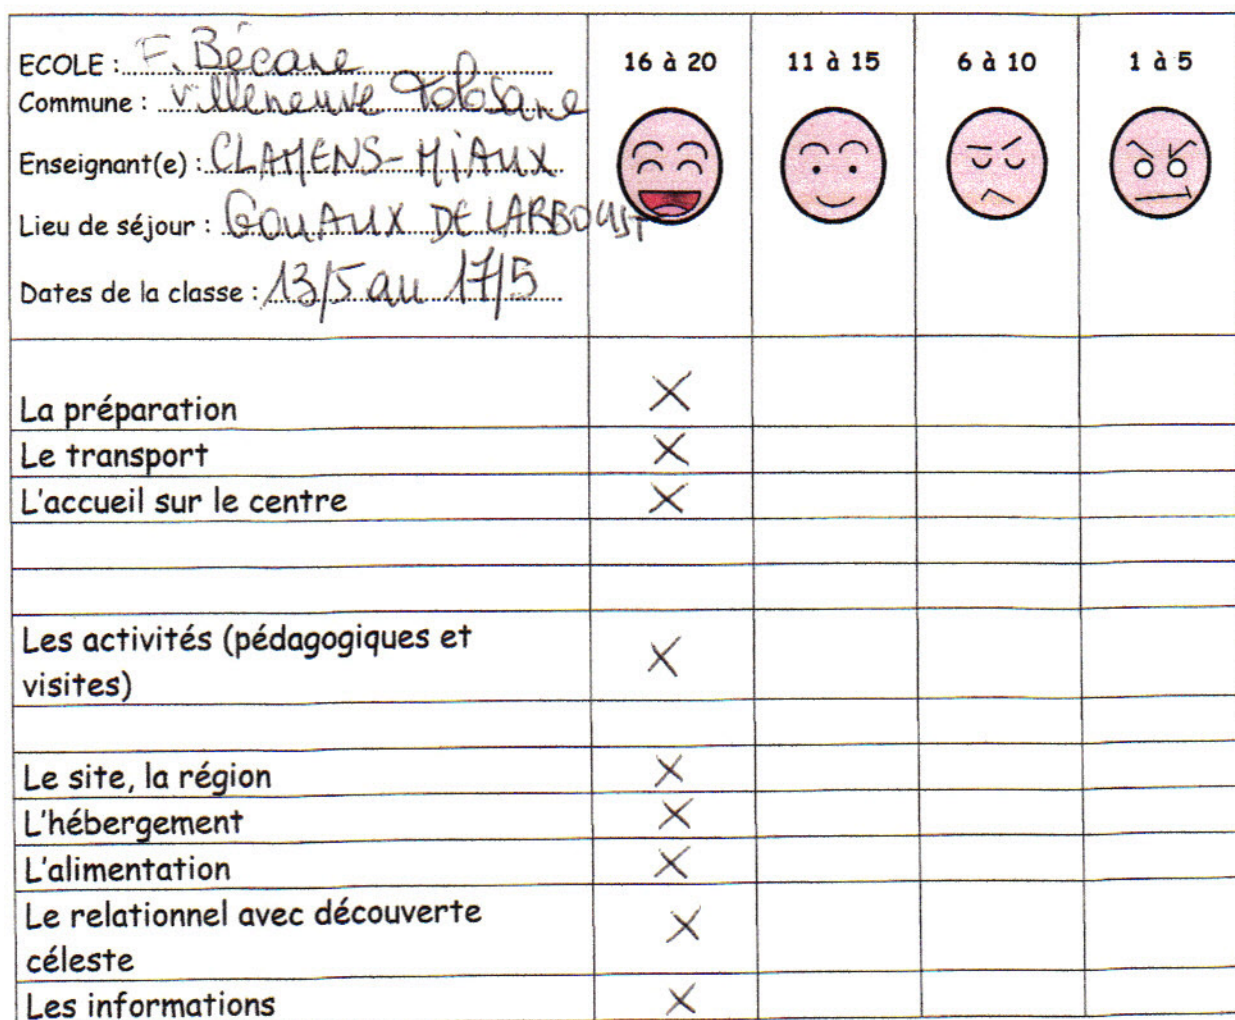 ECOLE : F. Bécane
16 à 20 11 à 15 6 à 10 1 à 5
Commune : Villeneuve Tolosane
Enseignant(e) : CLAMENS-MiAUX
Lieu de séjour : GOUAUX DE LARBOUST
Dates de la classe : 13/5 au 17/5
La préparation X
Le transport X
L'accueil sur le centre X
Les activités (pédagogiques et
visites) X
Le site, la région X
L'hébergement X
L'alimentation X
Le relationnel avec découverte
céleste X
Les informations X